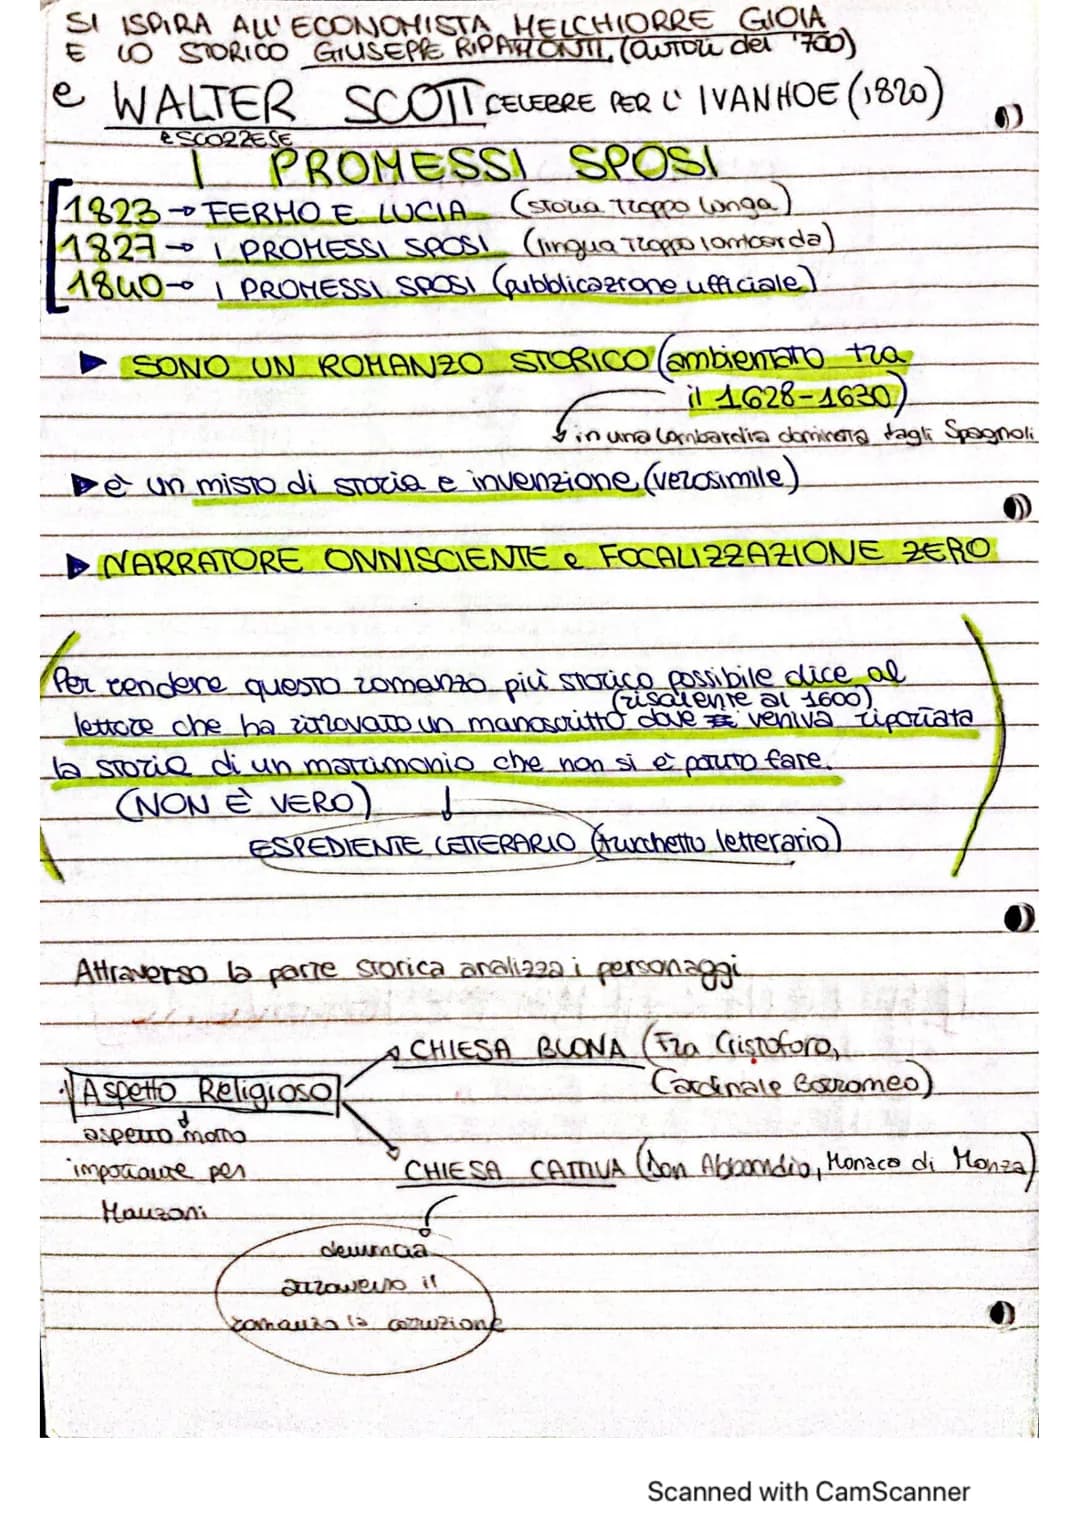 SI ISPIRA ALL'ECONOMISTA MELCHIORRE GIOIA
E LO STORICO GIUSEPPE RIPAMONTI, (autori del '700)
e WALTER SCOTT CELEBRE PER L'IVANHOE (1820)
è SCOZZESE
I PROMESSI SPOSI
1823 → FERMO E LUCIA (storia troppo lunga)
1827 → I PROMESSI SPOSI (lingua troppo lombarda)
1840 → I PROMESSI SPOSI (pubblicazione ufficiale)
▶ SONO UN ROMANZO STORICO (ambientato tra
il 1628-1630)
in una Lombardia dominata dagli Spagnoli
▶ è un misto di storia e invenzione (verosimile)
▶ NARRATORE ONNISCIENTE e FOCALIZZAZIONE ZERO
Per rendere questo romanzo più storico possibile dice al
(risalente al 1600)
lettore che ha ritrovato un manoscritto dove veniva riportata
la storia di un matrimonio che non si è potuto fare.
(NON È VERO) ↓
ESPEDIENTE LETTERARIO (trucchetto letterario)
Attraverso la parte storica analizza i personaggi
→ CHIESA BUONA (Fra Cristoforo,
Cardinale Borromeo)
Aspetto Religioso
aspetto molto
importante per
Manzoni
CHIESA CATTIVA (Don Abbondio, Monaca di Monza)
denuncia
attraverso il
romanzo la corruzione
Scanned with CamScanner